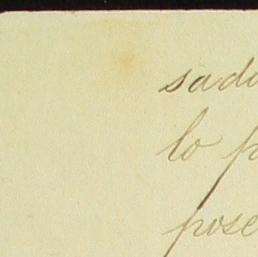 sadu
lo p
pose